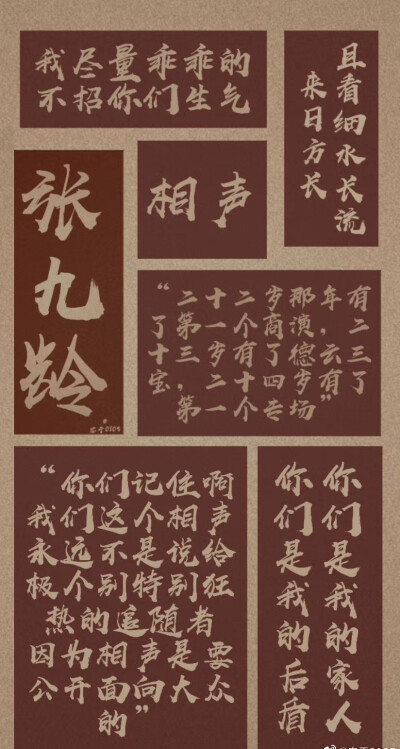 我尽量乖乖的
不招你们生气
且看细水长流
来日方长
张九龄
相声
“二十二岁那年有
了第一个商演，二
十三岁有了德云三
宝，二十四岁有了
第一个专场”
“你们记住啊
我们这个相声
永远不是说给
极个别特别狂
热的追随者
因为相声是要
公开面向大众
的”
你们是我的家人
你们是我的后盾